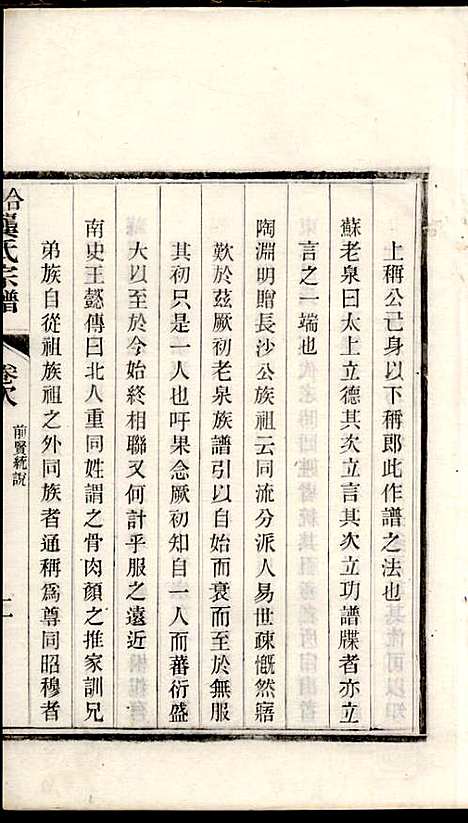 上稱公己身以下稱郎此作譜之法也
蘇老泉曰太上立德其次立言其次立功譜牒者亦立
言之一端也
陶淵明贈長沙公族祖云同流分派人易世疎慨然寤
歎於茲厥初老泉族譜引以自始而衰而至於無服
其初只是一人也吁果念厥初知自一人而蕃衍盛
大以至於今始終相聯又何計乎服之遠近
南史王懿傳曰北人重同姓謂之骨肉顏之推家訓兄
弟族自從祖族祖之外同族者通稱爲尊同昭穆者
龔氏宗譜
卷次
前賢統說
二